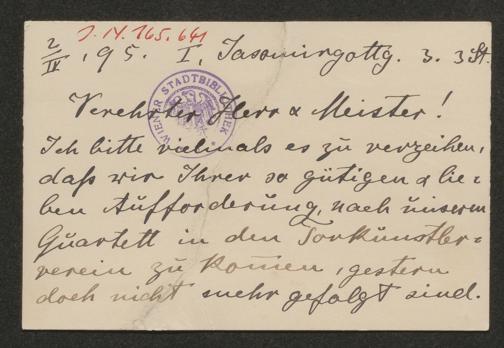 J. N. 165.641
2/IV, 95. I, Jasomirgottg. 3. 3 St.
WIENER STADTBIBLIOTHEK
Verehrter Herr & Meister!
Ich bitte vielmals es zu verzeihen,
daß wir Ihrer so gütigen & lie=
ben Aufforderung, nach unserm
Quartett in den Tonkünstler=
verein zu kom̄en, gestern
doch nicht mehr gefolgt sind.